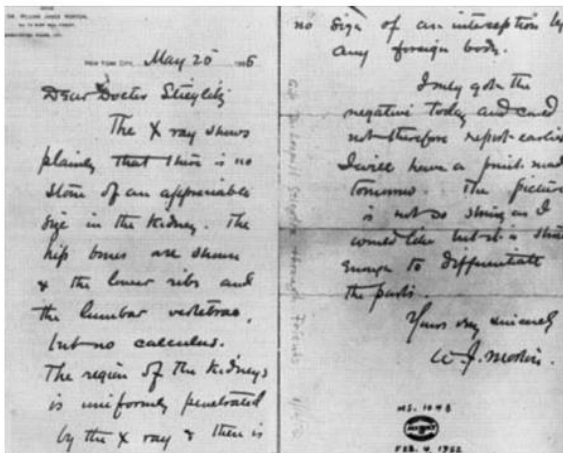 OFFICE
DR. WILLIAM JAMES MORTON,
NEW YORK CITY, May 25 1896
Dear Doctor Stieglitz
The X ray shows
plainly that there is no
stone of an appreciable
size in the kidney. The
hip bones are shown
& the lower ribs and
the lumbar vertebrae,
but no calculus.
The region of the kidneys
is uniformly penetrated
by the X ray & there is
no sign of an interception by
any foreign body.
I only got the
negative today and could
not therefore report earlier
I will have a print made
tomorrow. The picture
is not so strong as I
would like but it is strong
enough to differentiate
the parts.
Yours very sincerely
W. J. Morton.
MS. 1048
FEB. 4. 1952